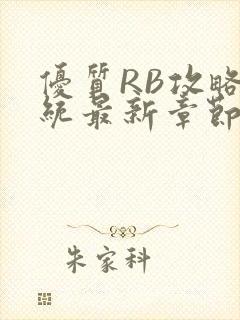 優質RB攻略
統最新章節
朱家科